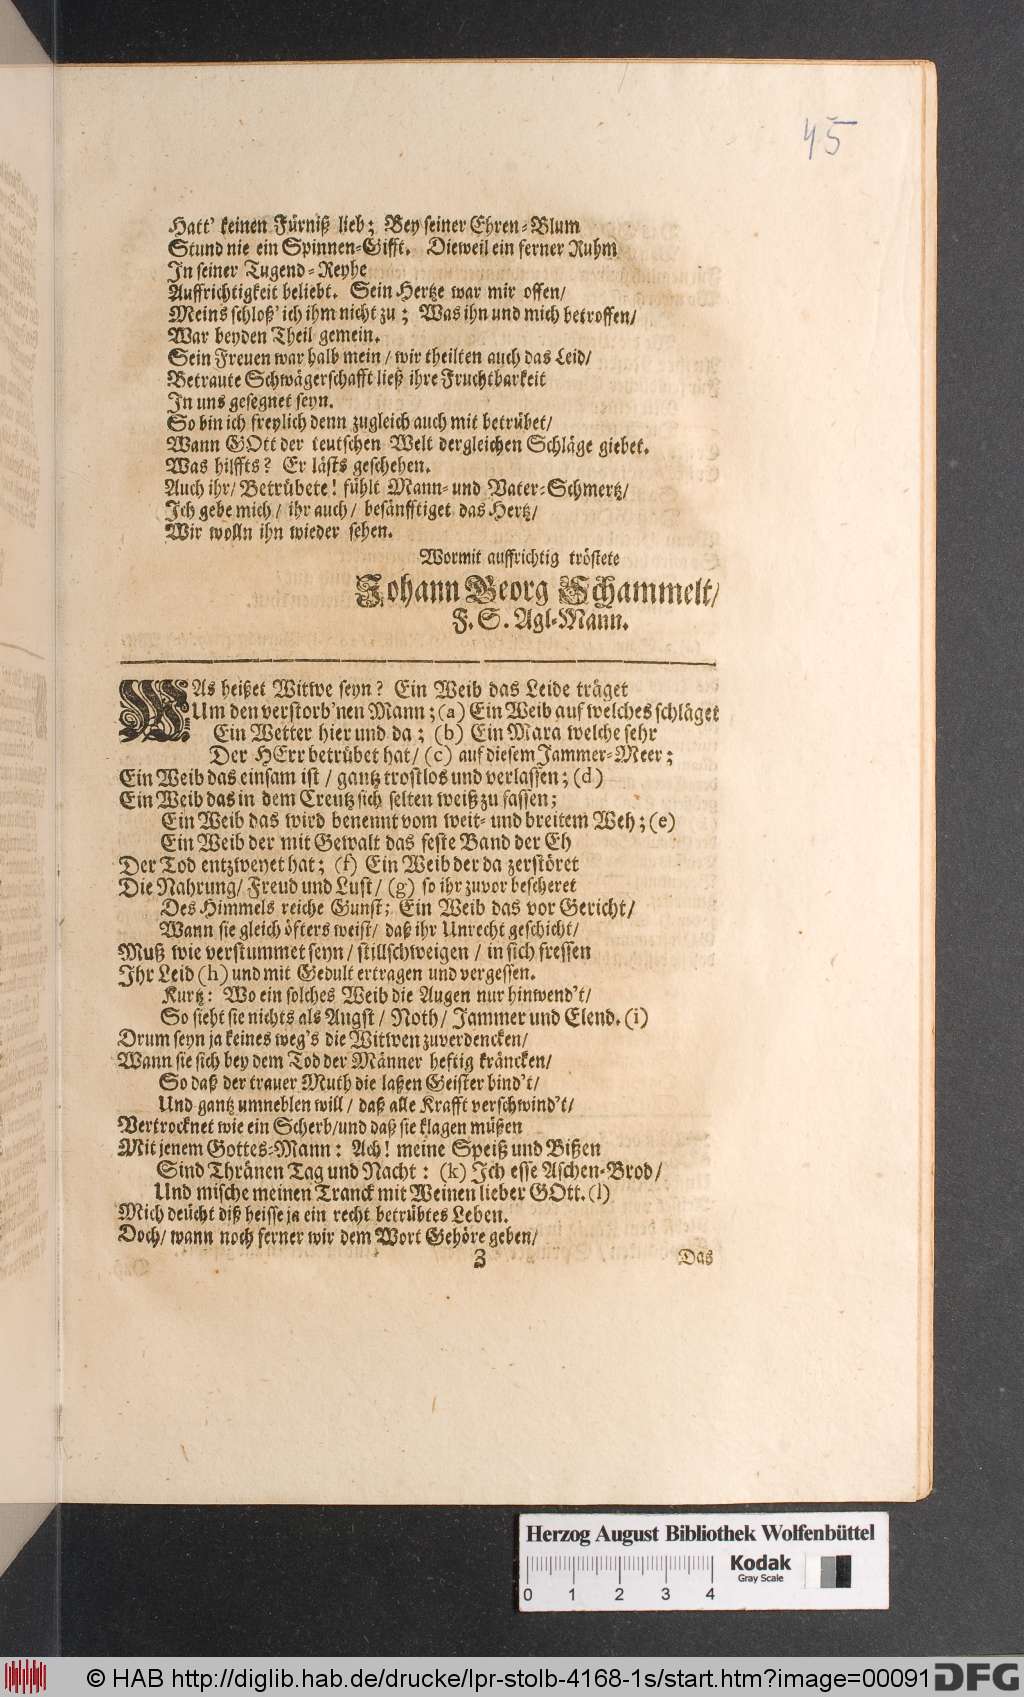 45
Hatt' keinen Fürniß lieb; Bey seiner Ehren-Blum
Stund nie ein Spinnen-Gifft. Dieweil ein ferner Ruhm
In seiner Tugend-Reyhe
Auffrichtigkeit beliebt. Sein Hertze war mir offen/
Meins schloß' ich ihm nicht zu; Was ihn und mich betroffen/
War beyden Theil gemein.
Sein Freuen war halb mein/ wir theilten auch das Leid/
Betraute Schwägerschafft ließ ihre Fruchtbarkeit
In uns gesegnet seyn.
So bin ich freylich denn zugleich auch mit betrübet/
Wann GOtt der teutschen Welt dergleichen Schläge giebet.
Was hilffts? Er lästs geschehen.
Auch ihr/ Betrübete! fühlt Mann- und Vater-Schmertz/
Ich gebe mich/ ihr auch/ besänfftiget das Hertz/
Wir wolln ihn wieder sehen.
Wormit auffrichtig tröstete
Johann Georg Schammelt/
F. S. Agl-Mann.
WAs heißet Witwe seyn? Ein Weib das Leide träget
Um den verstorb'nen Mann; (a) Ein Weib auf welches schläget
Ein Wetter hier und da; (b) Ein Mara welche sehr
Der HErr betrübet hat/ (c) auf diesem Jammer-Meer;
Ein Weib das einsam ist/ gantz trostlos und verlassen; (d)
Ein Weib das in dem Creutz sich selten weiß zu fassen;
Ein Weib das wird benennt vom weit- und breitem Weh; (e)
Ein Weib der mit Gewalt das feste Band der Eh
Der Tod entzweyet hat; (f) Ein Weib der da zerstöret
Die Nahrung/ Freud und Lust/ (g) so ihr zuvor bescheret
Des Himmels reiche Gunst; Ein Weib das vor Gericht/
Wann sie gleich öfters weist/ daß ihr Unrecht geschicht/
Muß wie verstummet seyn/ stillschweigen/ in sich fressen
Ihr Leid (h) und mit Gedult ertragen und vergessen.
Kurtz: Wo ein solches Weib die Augen nur hinwend't/
So sieht sie nichts als Angst/ Noth/ Jammer und Elend. (i)
Drum seyn ja keines weg's die Witwen zuverdencken/
Wann sie sich bey dem Tod der Männer heftig kräncken/
So daß der trauer Muth die laßen Geister bind't/
Und gantz umneblen will/ daß alle Krafft verschwind't/
Vertrocknet wie ein Scherb/ und daß sie klagen müßen
Mit jenem Gottes-Mann: Ach! meine Speiß und Bißen
Sind Thränen Tag und Nacht: (k) Ich esse Aschen-Brod/
Und mische meinen Tranck mit Weinen lieber GOtt. (l)
Mich deücht diß heisse ja ein recht betrübtes Leben.
Doch/ wann noch ferner wir dem Wort Gehöre geben/
3 Das
Herzog August Bibliothek Wolfenbüttel
Kodak
Gray Scale
0 1 2 3 4
© HAB http://diglib.hab.de/drucke/lpr-stolb-4168-1s/start.htm?image=00091
DFG